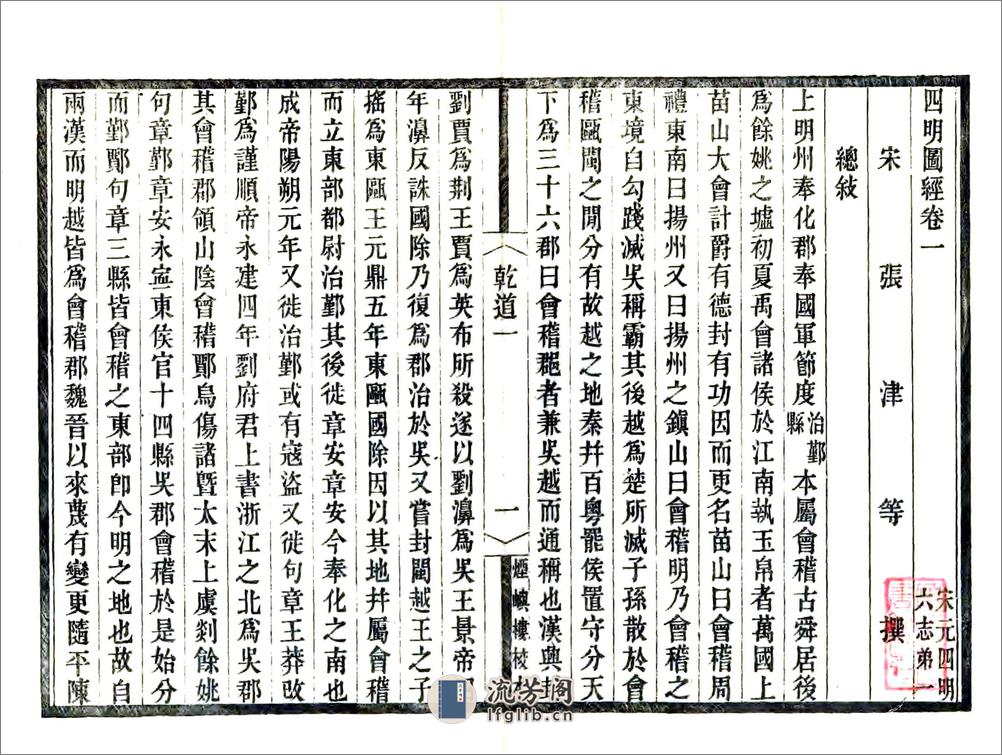 四明圖經卷一
宋元四明
六志弟一
宋張津等撰
總敍
上明州奉化郡奉國軍節度治鄞縣本屬會稽古舜居後
爲餘姚之墟初夏禹會諸侯於江南執玉帛者萬國上
苗山大會計爵有德封有功因而更名苗山曰會稽周
禮東南曰揚州又曰揚州之鎮山曰會稽明乃會稽之
東境自勾踐滅吳稱霸其後越爲楚所滅子孫散於會
稽甌閩之閒分有故越之地秦幷百粵罷侯置守分天
下爲三十六郡曰會稽郡者兼吳越而通稱也漢興
乾道一
一
煙嶼樓校
劉賈爲荆王賈爲英布所殺遂以劉濞爲吳王景帝
年濞反誅國除乃復爲郡治於吳又嘗封閩越王之子
搖爲東甌王元鼎五年東甌國除因以其地幷屬會稽
而立東部都尉治鄞其後徙章安章安今奉化之南也
成帝陽朔元年又徙治鄞或有寇盜又徙句章王莽改
鄞爲謹順帝永建四年劉府君上書浙江之北爲吳郡
其會稽郡領山陰會稽鄮烏傷諸暨太末上虞剡餘姚
句章鄞章安永寍東侯官十四縣吳郡會稽於是始分
而鄞鄮句章三縣皆會稽之東部卽今明之地也故自
兩漢而明越皆爲會稽郡魏晉以來蔑有變更隨平陳
流芳閣
lfglib.cn